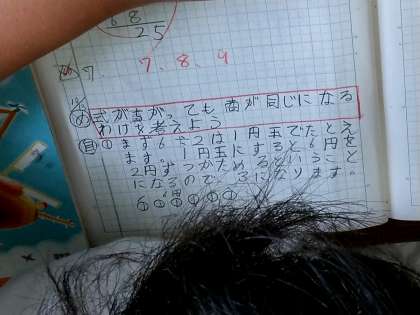 68
25
7. 7、8、9
め 式がちがっても商が同じになる
わけを考えよう
自 ① まず6÷2は1円玉でたとえ
ます。1円玉にすると6円を
2円ずつかためるということ
になるので、3になります。
6円
①①①①①①